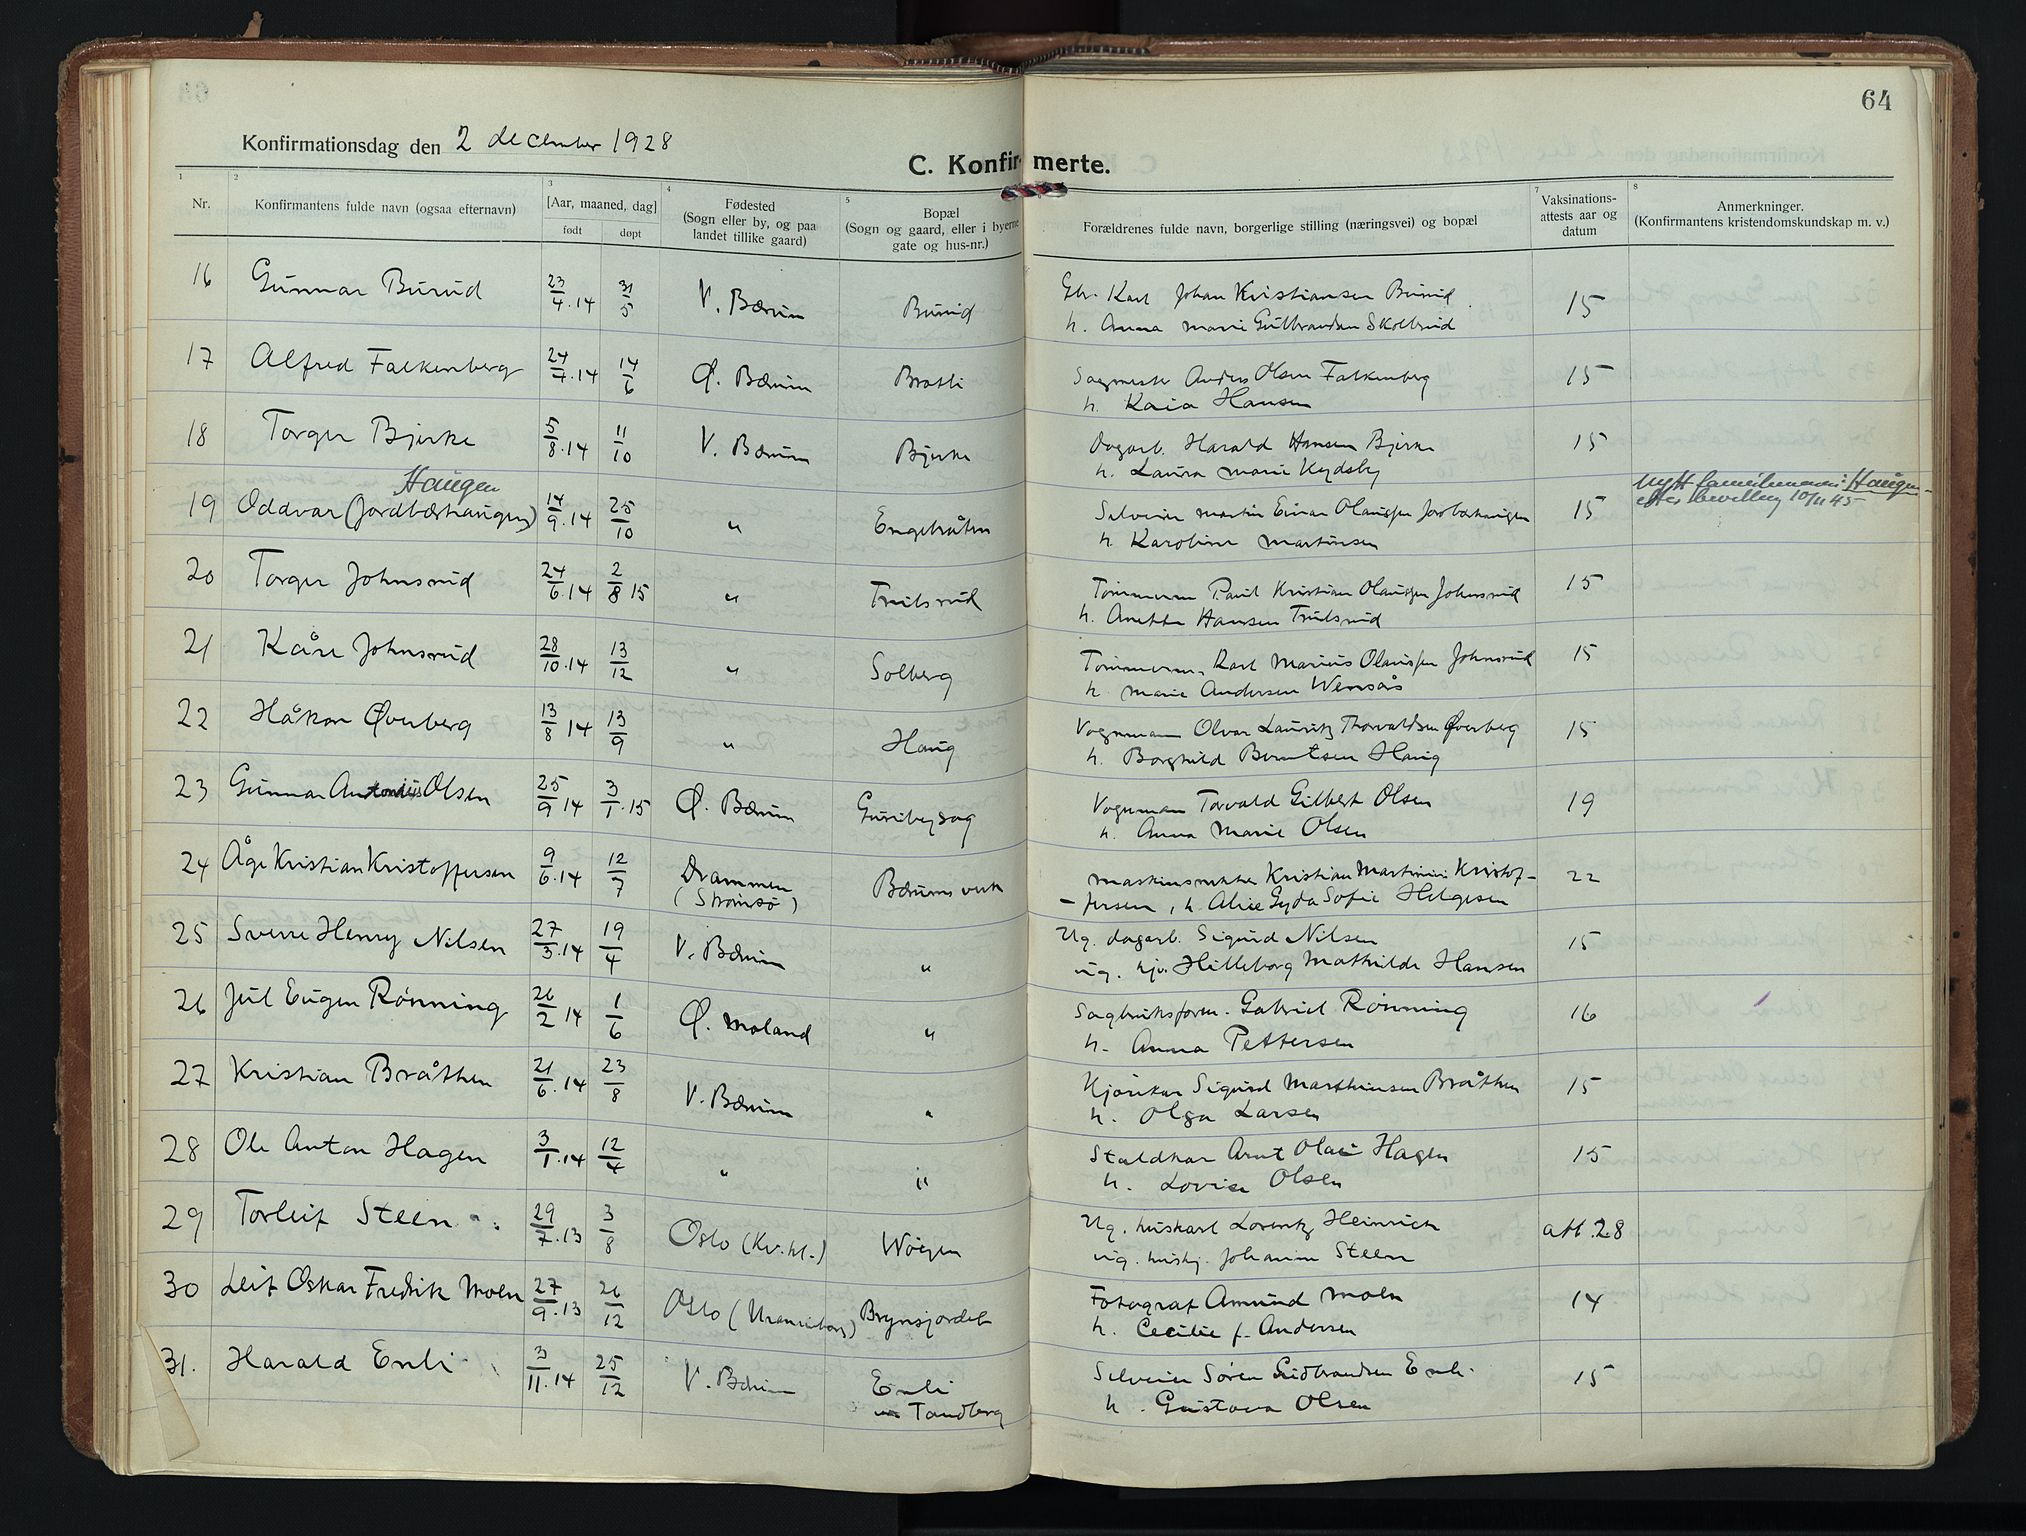 64
Konfirmationsdag den 2 december 1928
C. Konfirmerte.
1 2 3 4 5 7 8
Nr.
Konfirmantens fulde navn (ogsaa efternavn)
[Aar, maaned, dag]
født døpt
Fødested
(Sogn eller by, og paa
landet tillike gaard)
Bopæl
(Sogn og gaard, eller i byerne
gate og hus-nr.)
Forældrenes fulde navn, borgerlige stilling (næringsvei) og bopæl
Vaksinations-
attests aar og
datum
Anmerkninger.
(Konfirmantens kristendomskundskap m. v.)
16 Gunnar Burud 23/4.14 31/5 V. Bærum Burud Gbr. Karl Johan Kristiansen Burud 15
h. Anna Marie Gulbrandsen Skollerud
17 Alfred Falkenberg 24/7.14 14/6 Ø. Bærum Bratli Sagmester Anders Olsen Falkenberg 15
h. Kaia Hansen
18 Torger Bjerke 5/8.14 11/10 V. Bærum Bjerke Dagarb. Harald Hansen Bjerke 15
h. Laura Marie Kydsby
Haugen
19 Oddvar (Jordbærhaugen) 14/9.14 25/10 " Engebråten Selveier Martin Einar Olaussen Jordbærhaugen 15
h. Karoline Martinsen
Nytt familienavn: Haugen
efter bevilling 10/11 45
20 Torger Johnsrud 24/6.14 2/8 15 " Trulsrud Tømmerm. Paul Kristian Olaussen Johnsrud 15
h. Anette Hansen Trulsrud
21 Kåre Johnsrud 28/10.14 13/12 " Solberg Tømmerm. Karl Marius Olaussen Johnsrud 15
h. Marie Andersen Wensås
22 Håkon Øverberg 13/8 14 13/9 " Haug Vognmann Olvar Lauritz Thorvaldsen Øverberg 15
h. Borghild Berntsen Haug
23 Gunnar Antonius Olsen 25/9 14 3/1.15 Ø. Bærum Guribysag Vognman Torvald Gilbert Olsen 19
h. Anna Marie Olsen
24 Åge Kristian Kristoffersen 9/6.14 12/7 Drammen Bærums verk Maskinsnekker Kristian Martinius Kristof- 22
(Strømsø) -fersen, h. Alice Gyda Sofie Helgesen
25 Sverre Henry Nilsen 27/3.14 19/4 V. Bærum " Ug. dagarb. Sigurd Nilsen 15
ug. hjv. Hilleborg Mathilde Hansen
26 Jul Eugen Rønning 26/2 14 1/6 Ø. Moland " Sagbruksform. Gabriel Rønning 16
h. Anna Pettersen
27 Kristian Bråthen 21/6.14 23/8 V. Bærum " Kjørekar Sigurd Marthinsen Bråthen 15
h. Olga Larsen
28 Ole Anton Hagen 3/1.14 12/4 " " Staldkar Arnt Olai Hagen 15
h. Lovise Olsen
29 Torleif Steen 29/7.13 3/8 Oslo (Kv.hl.) Wøyen Ug. huskarl Lorentz Heinrich att. 28
ug. hushj. Johanne Steen
30 Leif Oskar Fredrik Moen 27/9.13 26/12 Oslo (Uranienborg) Brynsjordet Fotograf Amund Moen 14
h. Cecilie f. Andersen
31. Harald Enli 3/11.14 25/12 V. Bærum Enli Selveier Søren Gudbrandsen Enli 15
Tandberg h. Gustava Olsen